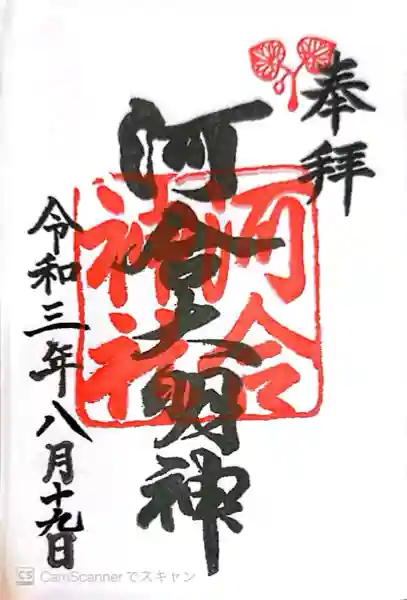 奉拝
河合大明神
河合
神社
令和三年八月十九日
CS CamScannerでスキャン